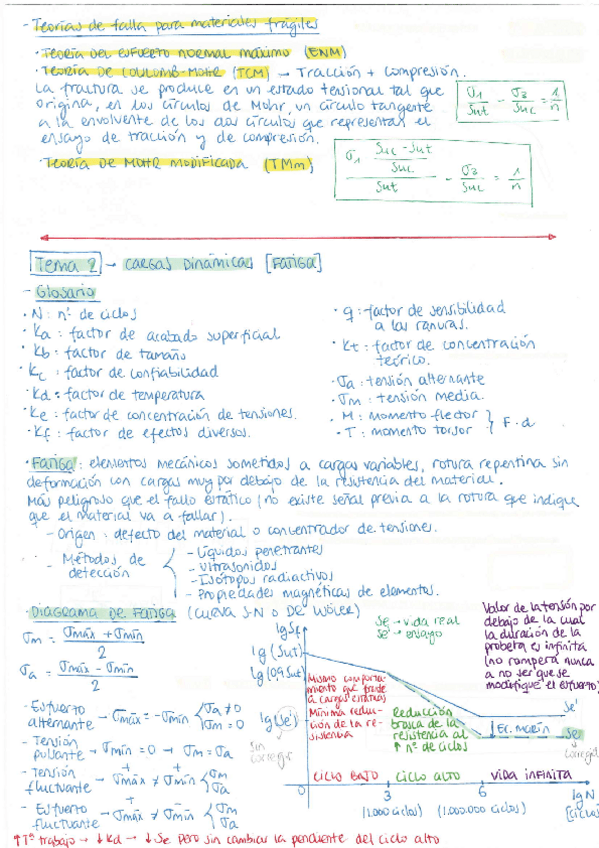 - Teorías de falla para materiales frágiles
· Teoría del esfuerzo normal máximo (ENM)
· Teoría de COULOMB-MOHR (TCM) → Tracción + compresión.
La fractura se produce en un estado tensional tal que
origina, en los círculos de Mohr, un círculo tangente
a la envolvente de los dos círculos que representan el
ensayo de tracción y de compresión.
σ1/Sut - σ3/Suc = 1/n
· Teoría de MOHR MODIFICADA (TMm)
σ1 (Suc - Sut)/Suc / Sut - σ3/Suc = 1/n
Tema 2 → CARGAS DINÁMICAS [FATIGA]
- Glosario
· N: nº de ciclos
· Ka: factor de acabado superficial
· Kb: factor de tamaño
· Kc: factor de confiabilidad
· Kd: factor de temperatura
· Ke: factor de concentración de tensiones.
· Kf: factor de efectos diversos.
· q: factor de sensibilidad
a las ranuras.
· Kt: factor de concentración
teórico.
· σa: tensión alternante
· σm: tensión media.
· M: momento flector
· T: momento torsor } F·d
· FATIGA: elementos mecánicos sometidos a cargas variables, rotura repentina sin
deformación con cargas muy por debajo de la resistencia del material.
Más peligroso que el fallo estático (no existe señal previa a la rotura que indique
que el material va a fallar).
- Origen: defecto del material o concentrador de tensiones.
- Métodos de
detección
- Líquidos penetrantes
- Ultrasonidos
- Isótopos radiactivos
- Propiedades magnéticas de elementos.
· DIAGRAMA DE FATIGA (CURVA S-N O DE WÖLER)
σm = (σmáx + σmín)/2
σa = (σmáx - σmín)/2
- Esfuerzo
alternante → σmáx = -σmín { σa ≠ 0
σm = 0
- Tensión
pulsante → σmín = 0 → σm = σa
- Tensión
fluctuante → +σmáx ≠ +σmín { σm
σa
- Esfuerzo
fluctuante → +σmáx ≠ -σmín { σm
σa
lg Se
Se → vida real
Se' → ensayo
Valor de la tensión por
debajo de la cual
la duración de la
probeta es infinita
(no romperá nunca
a no ser que se
modifique el esfuerzo)
lg (Sut)
lg (0.9 Sut)
lg (Se')
Sin
corregir
Mismo comporta-
miento que frente
a cargas estáticas
Mínima reduc-
ción de la re-
sistencia
Reducción
brusca de la
resistencia al
↑ nº de ciclos
Se'
↓ Ec. Marin
Se
corregid
CICLO BAJO
CICLO ALTO
VIDA INFINITA
0
3
6
lg N
(1.000 ciclos)
(1.000.000 ciclos)
[ciclos]
↑Tª trabajo → ↓Kd → ↓Se pero sin cambiar la pendiente del ciclo alto